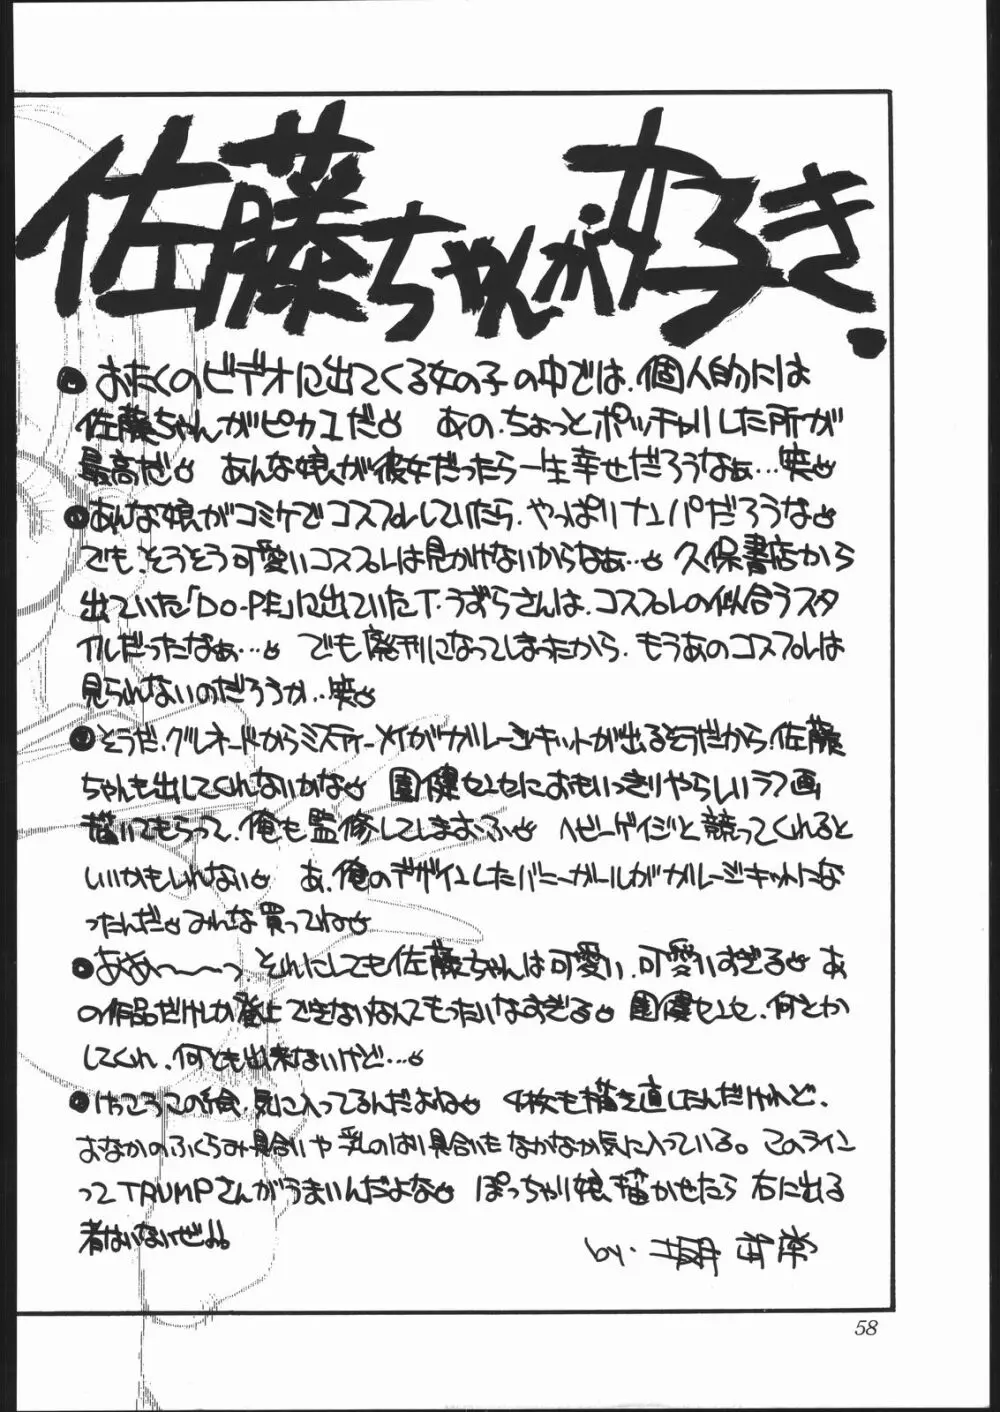 佐藤ちゃんが好き.
おたくのビデオに出てくる女の子の中では、個人的には
佐藤ちゃんがピカ1だ♡ あの、ちょっとポッチャリした所が
最高だ♡ あんな娘が彼女だったら一生幸せだろうなぁ…笑♡
あんな娘がコミケでコスプレしていたら、やっぱりナンパだろうな♡
でも、そうそう可愛いコスプレは見かけないからなぁ…♡ 久保書店から
出ていた「DO-PE」に出ていたT・うずらさんは、コスプレの似合うスタ
イルだったなぁ…♡ でも廃刊になってしまったから、もうあのコスプレは
見られないのだろうか…笑♡
そうだ、グルネードからミスティーメイがガレージキットが出るそうだから、佐藤
ちゃんも出してくれないかな♡ 園健センセにおもいっきりやらしいラフ画
描いてもらって、俺も監修してしまお、ふ♡ ヘビーゲイジと競ってくれると
いいかもしれない♡ あ、俺のデザインしたバニーガールがガレージキットにな
ったんだ♡みんな買ってね♡
ああ〜〜〜っ、それにしても佐藤ちゃんは可愛い、可愛いすぎる♡ あ
の作品だけしか登上できないなんてもったいなすぎる♡ 園健センセ、何とか
してくれ、何とも出来ないけど…♡
けっこうこの絵、気に入ってるんだよね♡ 4枚も描き直したんだけれど、
おなかのふくらみ具合いや乳のはり具合いもなかなか気に入っている。このライン
ってTRUMPさんがうまいんだよな♡ ぽっちゃり娘描かせたら右に出る
者はいないぜ!!
by.
58